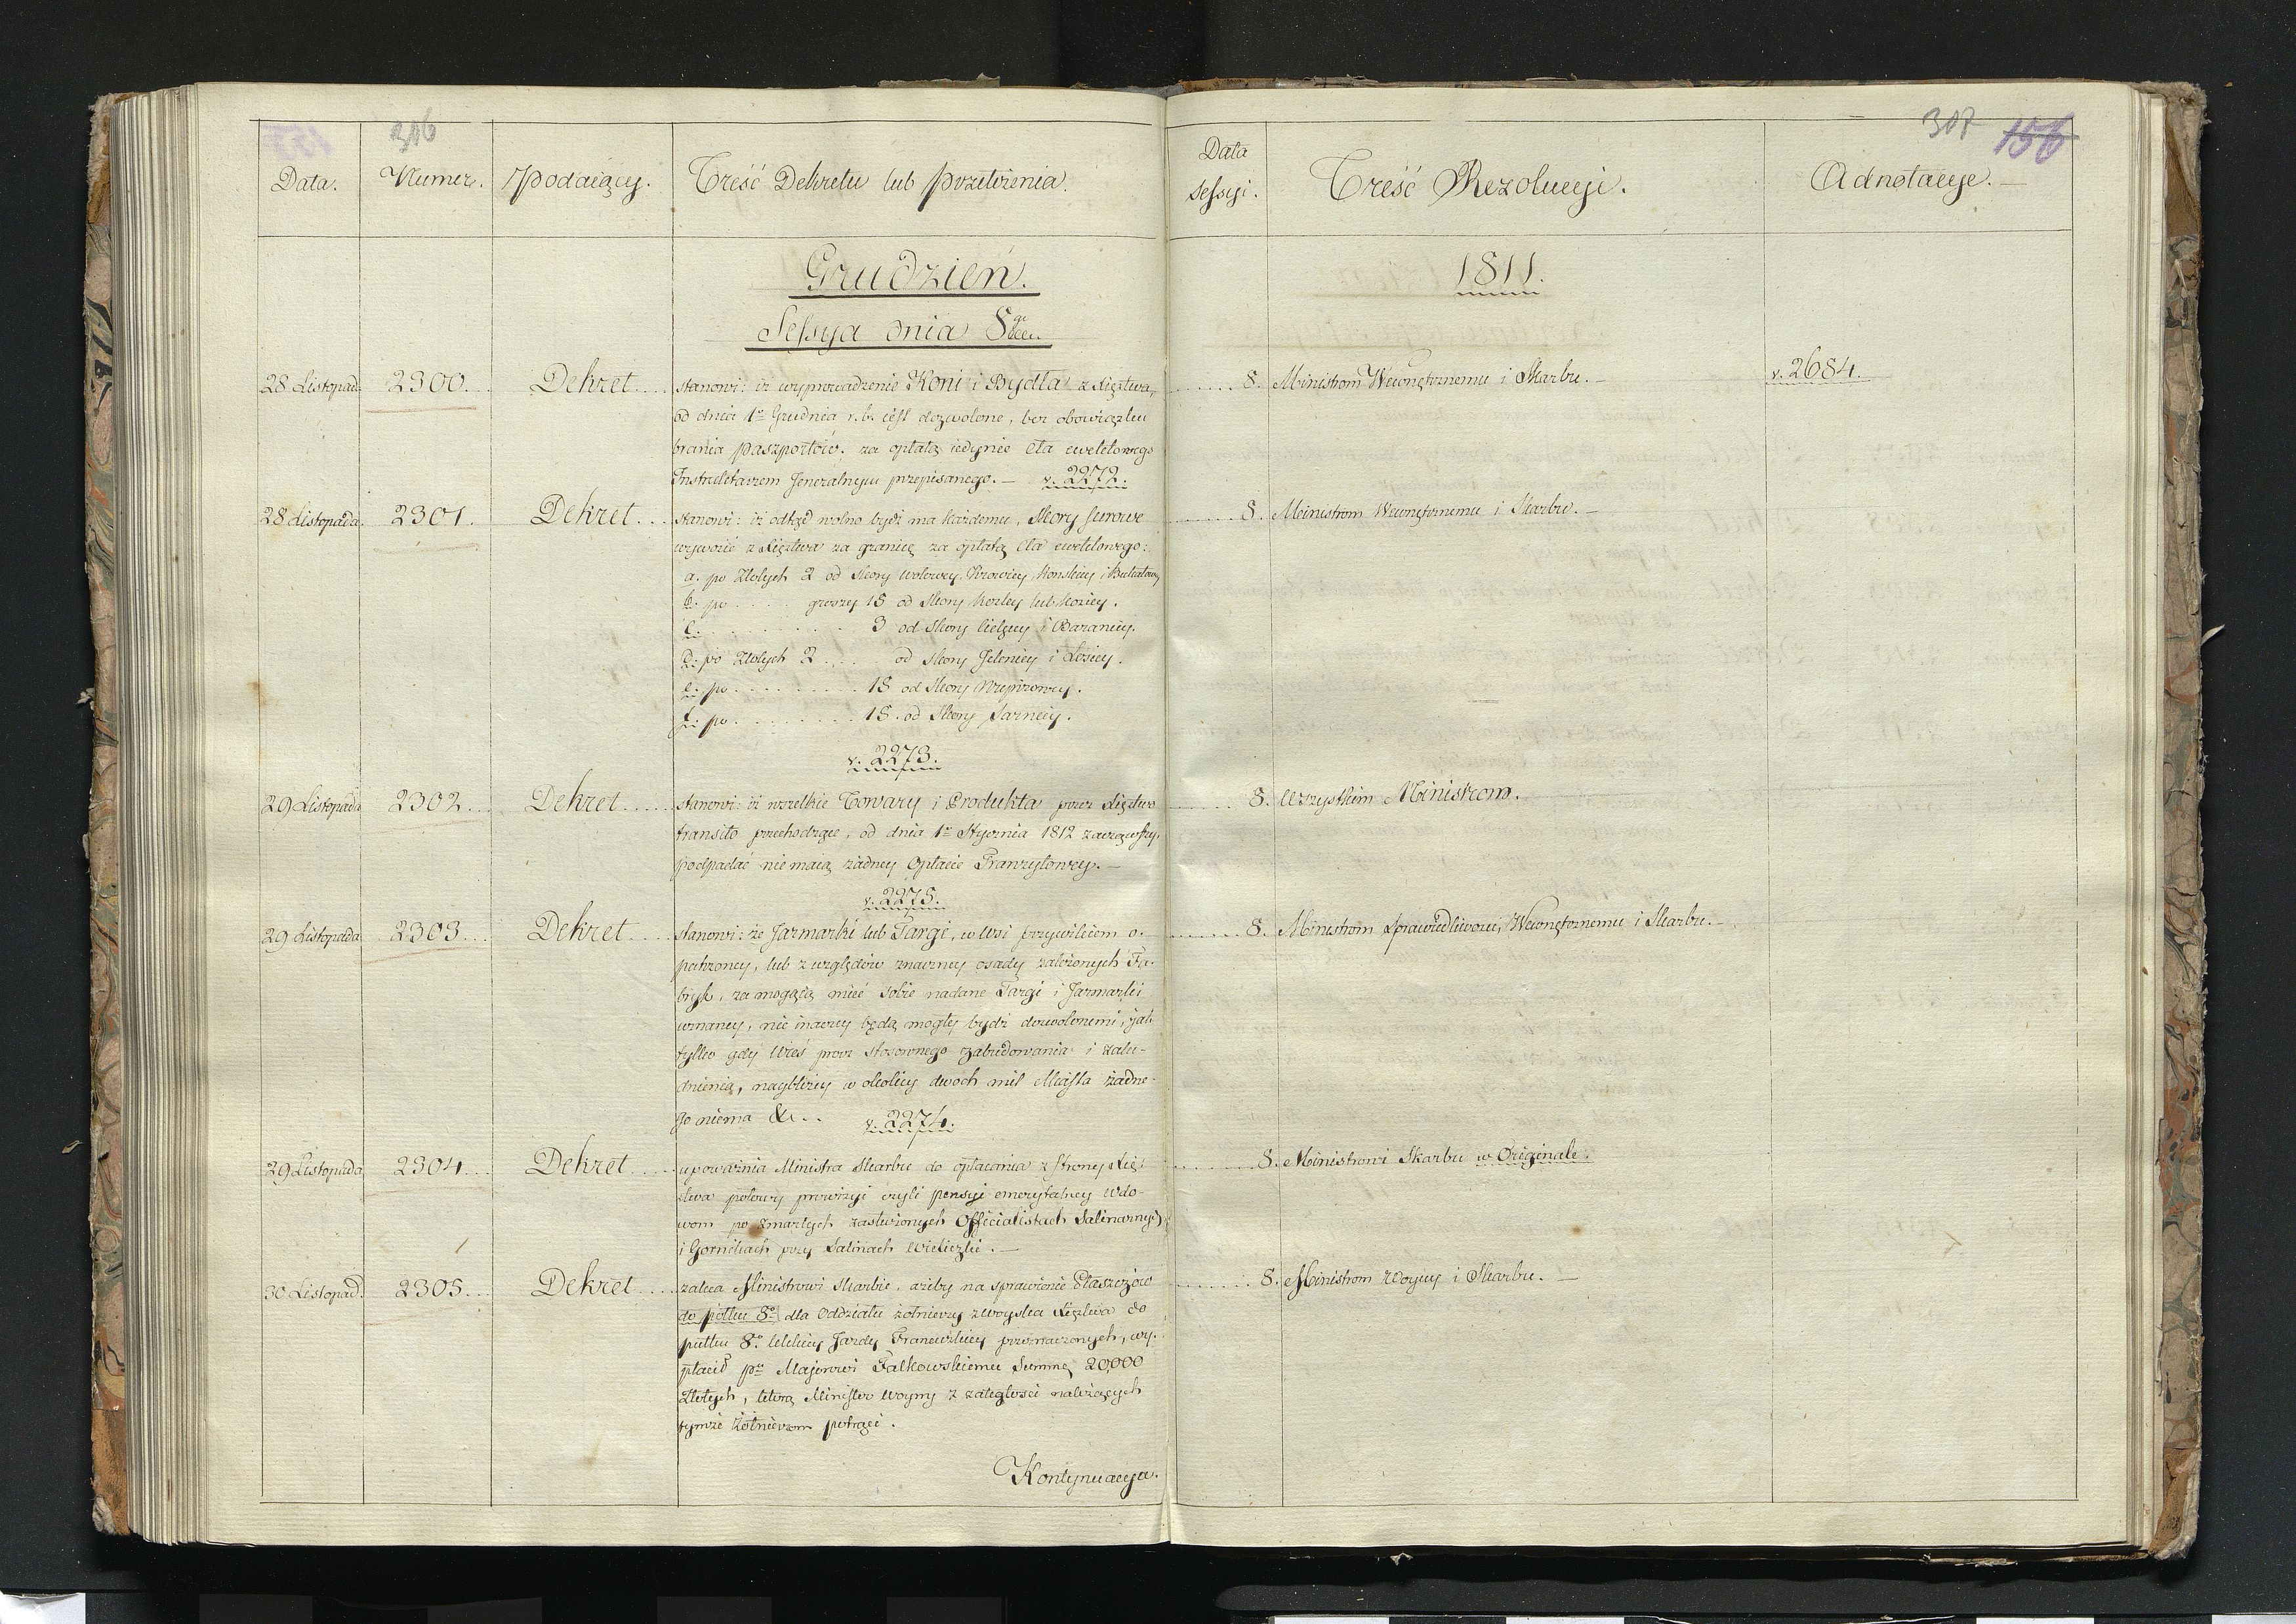 306
307 156
Data. Numer. Podaiący. Treść Dekretu lub Przełożenia. Data Sessyi. Treść Rezolucyi. Adnotacye.
Grudzień. 1811.
Sessya dnia 8go
28 Listopad. 2300... Dekret.... stanowi: iż wyprowadzenie Koni i Bydła z Xięztwa, ...... 8. Ministrom Wewnętrznemu i Skarbu. v. 2684.
od dnia 1o Grudnia r. b. iest dozwolone, bez obowiązku
brania paszportów, za opłatą iedynie Cła ewektowego
Instruktarzem Jeneralnym przepisanego. — v. 2272.
28 Listopada 2301. Dekret... stanowi: iż odtąd wolno bydź ma każdemu, Skory surowe ...... 8. Ministrom Wewnętrznemu i Skarbu.
wywozić z Xięztwa za granicę za opłatą Cła ewektowego:
a. po Złotych 2 od Skory wołowey, Krowiey, Konskiey i
b. po ..... groszy 15 od Skory Kozley lub Koziey.
c. .......... 3 od Skory Cielęcey i Baraniey.
d. po Złotych 2 .... od Skory Jeleniey i Łosiey.
e. po .......... 18 od Skory Wieprzowey.
f. po .......... 15. od Skory Sarniey.
v. 2273.
29 Listopada 2302... Dekret..... stanowi: iż wszelkie Towary i Produkta przez Xięztwo ...... 8. Wszystkim Ministrom.
transito przechodzące, od dnia 1o Stycznia 1812 zacząwszy,
podpadać nie maią żadney Opłacie Tranzytowey. —
v. 2275.
29 Listopada 2303... Dekret .... stanowi: że Jarmarki lub Targi, w Wsi przywileiem o- ....... 8. Ministrom Sprawiedliwości, Wewnętrznemu i Skarbu.
patrzoney, lub z względów znaczney osady założonych Fa-
bryk, za mogącą mieć sobie nadane Targi i Jarmarki
uznaney, nie inaczey będą mogły bydź dozwolonemi, jak
tylko gdy Wieś procz stosownego zabudowania i zalu-
dnienia, naybliżey w okolicy dwoch mil Miasta żadne-
go niema &... v. 2274.
29 Listopada 2304... Dekret .... upoważnia Ministra Skarbu do opłacania z strony Xięz- ....... 8. Ministrowi Skarbu w Originale.
stwa połowy prowizyi czyli pensyi emerytalney Wdo-
wom po zmarłych zasłużonych Officialistach Salinarnych
i Gornikach przy Salinach Wieliczki. —
30 Listopad. 2305... Dekret .... zaleca Ministrowi Skarbu, ażeby na sprawienie Płaszczów ....... 8. Ministrom Woyny i Skarbu. —
do pułku 8o dla Oddziału żołnierzy z woyska Xięztwa do
pułku 8o lekkiey Jazdy Francuzkiey przeznaczonych, wy-
płacił pu Majorowi Falkowskiemu Summę 20,000
Złotych, którą Minister Woyny z zaległości należących
tymże Żołnierzom potrąci.
Kontynuacya.